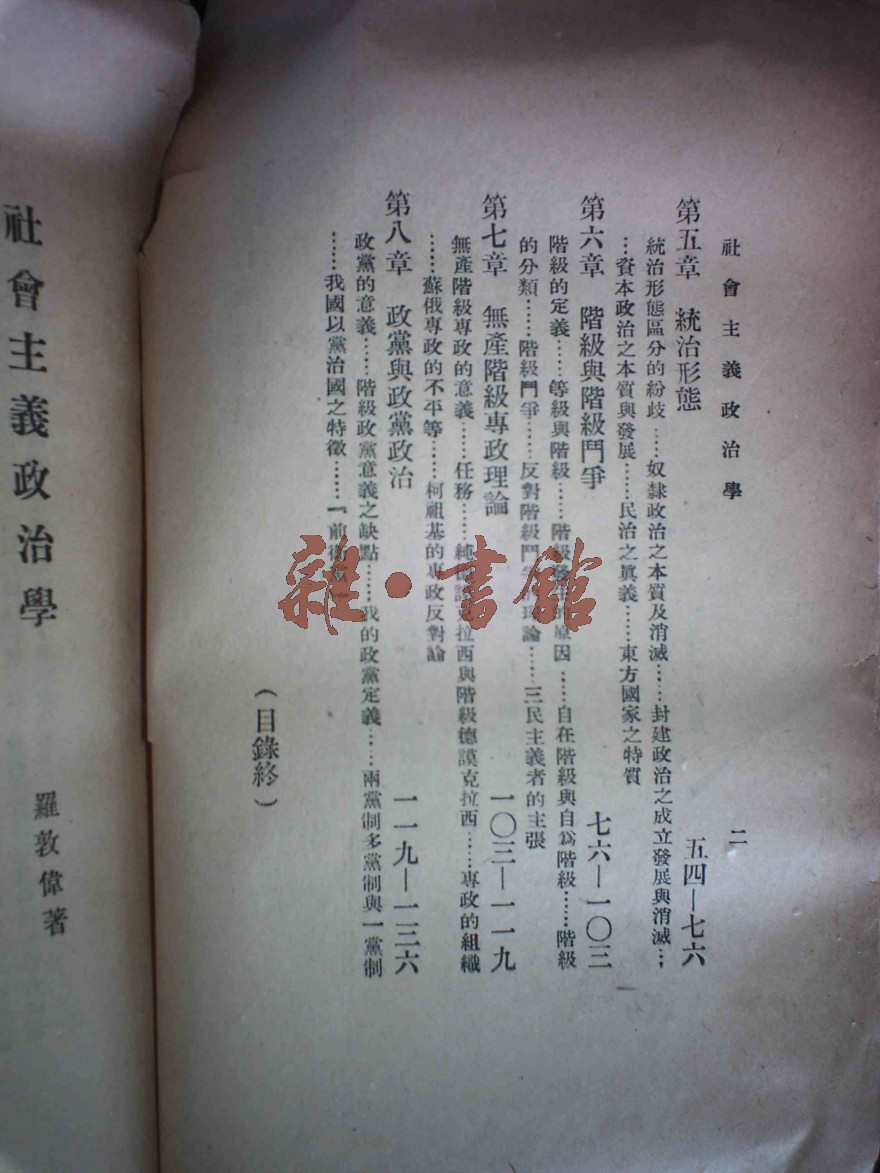 社會主義政治學
二
第五章　統治形態
五四—七六
統治形態區分的紛歧……奴隸政治之本質及消滅……封建政治之成立發展與消滅…
…資本政治之本質與發展……民治之眞義……東方國家之特質
第六章　階級與階級鬥爭
七六—一〇三
階級的定義……等級與階級……階級發生的原因……自在階級與自爲階級……階級
的分類……階級鬥爭……反對階級鬥爭理論……三民主義者的主張
第七章　無產階級專政理論
一〇三—一一九
無產階級專政的意義……任務……純粹謨克拉西與階級德謨克拉西……專政的組織
……蘇俄專政的不平等……柯祖基的專政反對論
第八章　政黨與政黨政治
一一九—一三六
政黨的意義……階級政黨意義之缺點……我的政黨定義……兩黨制多黨制與一黨制
……我國以黨治國之特徵……「前衛
（目錄終）
社會主義政治學
羅敦偉著
雜·書館